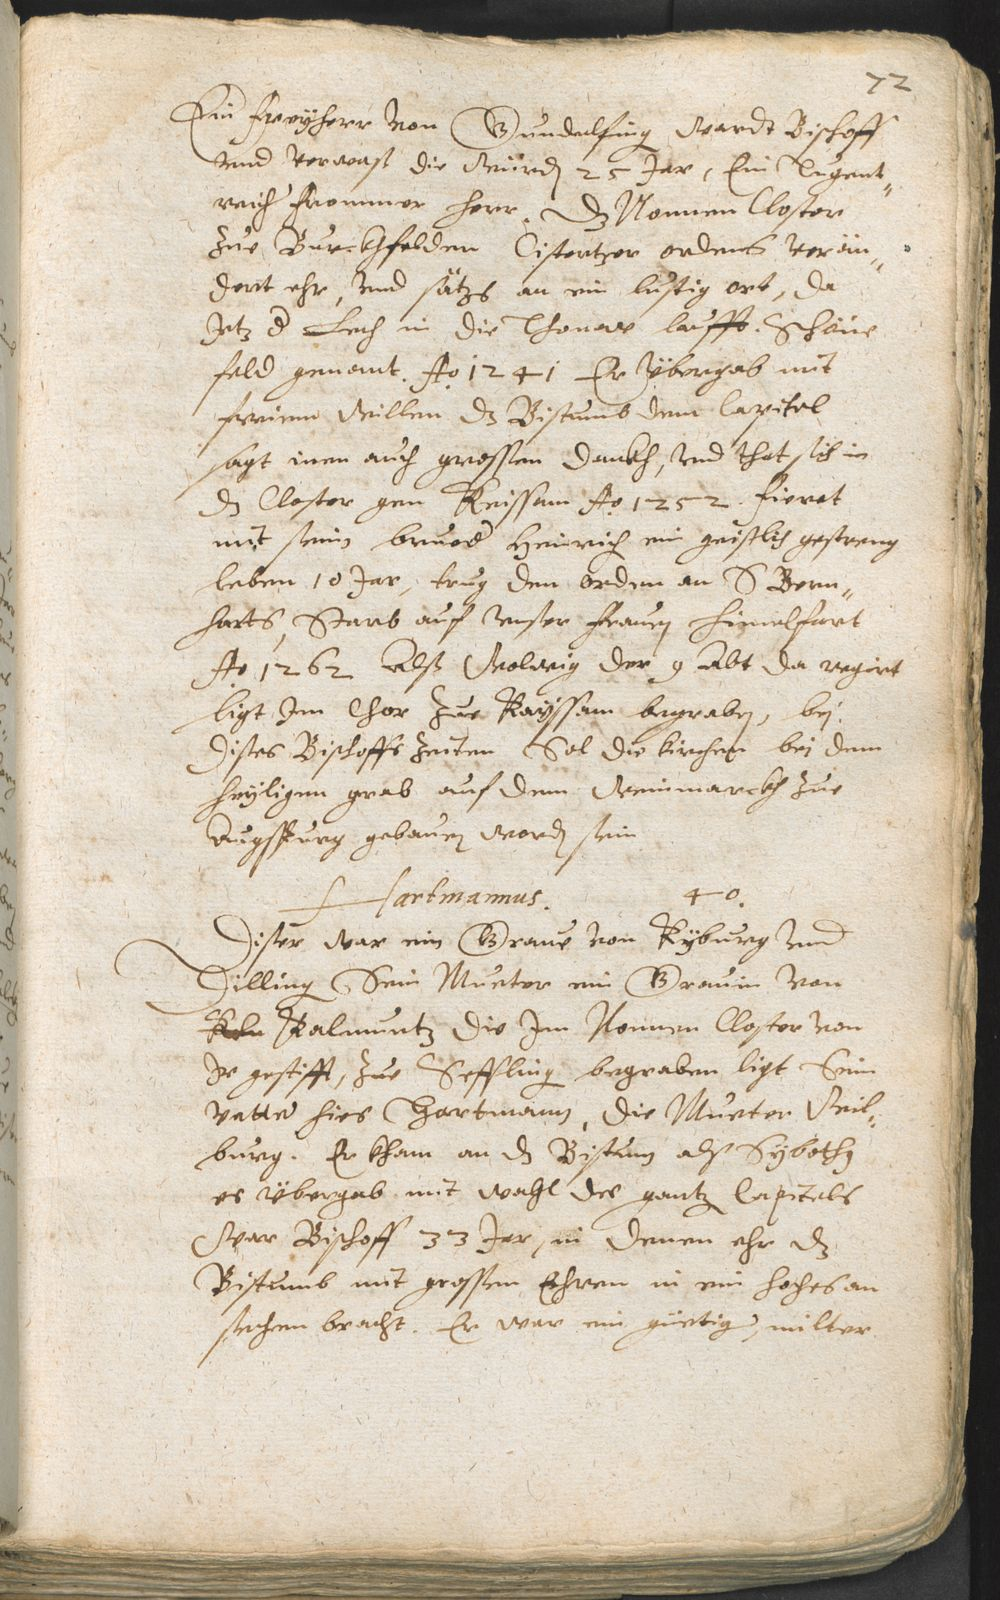 72
Ein Freyherr von Gundelfing wardt Bischoff
vnd verwast die würdt 25 Jar, Ein Tugent„
reich frommer herr. Dz Nonnen Closter
zue Burckhfelden Cistertzer ordens verän„
dert ehr, vnd sätzs an ein lustig ort, da
Jetz d Lech in die Thonaw laufft. Schöne
feld genant. Ao 1241 Er Vbergab mit
freiem willen dz Bistumb dem Capitel
sagt inen auch grossen danckh, vnd thet sich in
dz Closter gen Keissam Ao 1252. fieret
mit seim brued Heinrich ein geistlich gestreng
leben 10 Jar, trug den orden an S Bern„
harts, Starb auf vnser frauen himelfart
Ao 1262 Alß Wolwig der 9 Abt da regirt
ligt Im Chor zue Kayssam begraben, bei
dises Bischoffs zeiten Sol die kirchen bei dem
heyligen grab auf dem Weinmarckh zue
Augspurg gebauen worden sein
Hartmannus. 40.
Diser war ein Graue von Kyburg vnd
Dilling Sein Mueter ein Grauin von
Kalmuntz die Im Nonnen Closter von
Ir gestifft, zue Seffling begraben ligt Sein
vatter hies Hartmann, die Mueter Wil„
burg. Er kham an dz Bistum als Syboth
es Vbergab mit wahl des gantz Capitels
War Bischoff 33 Jar, in denen ehr dz
Bistumb mit grossen Ehren in ein hoches an
sechen bracht. Er war ein güetig, milter